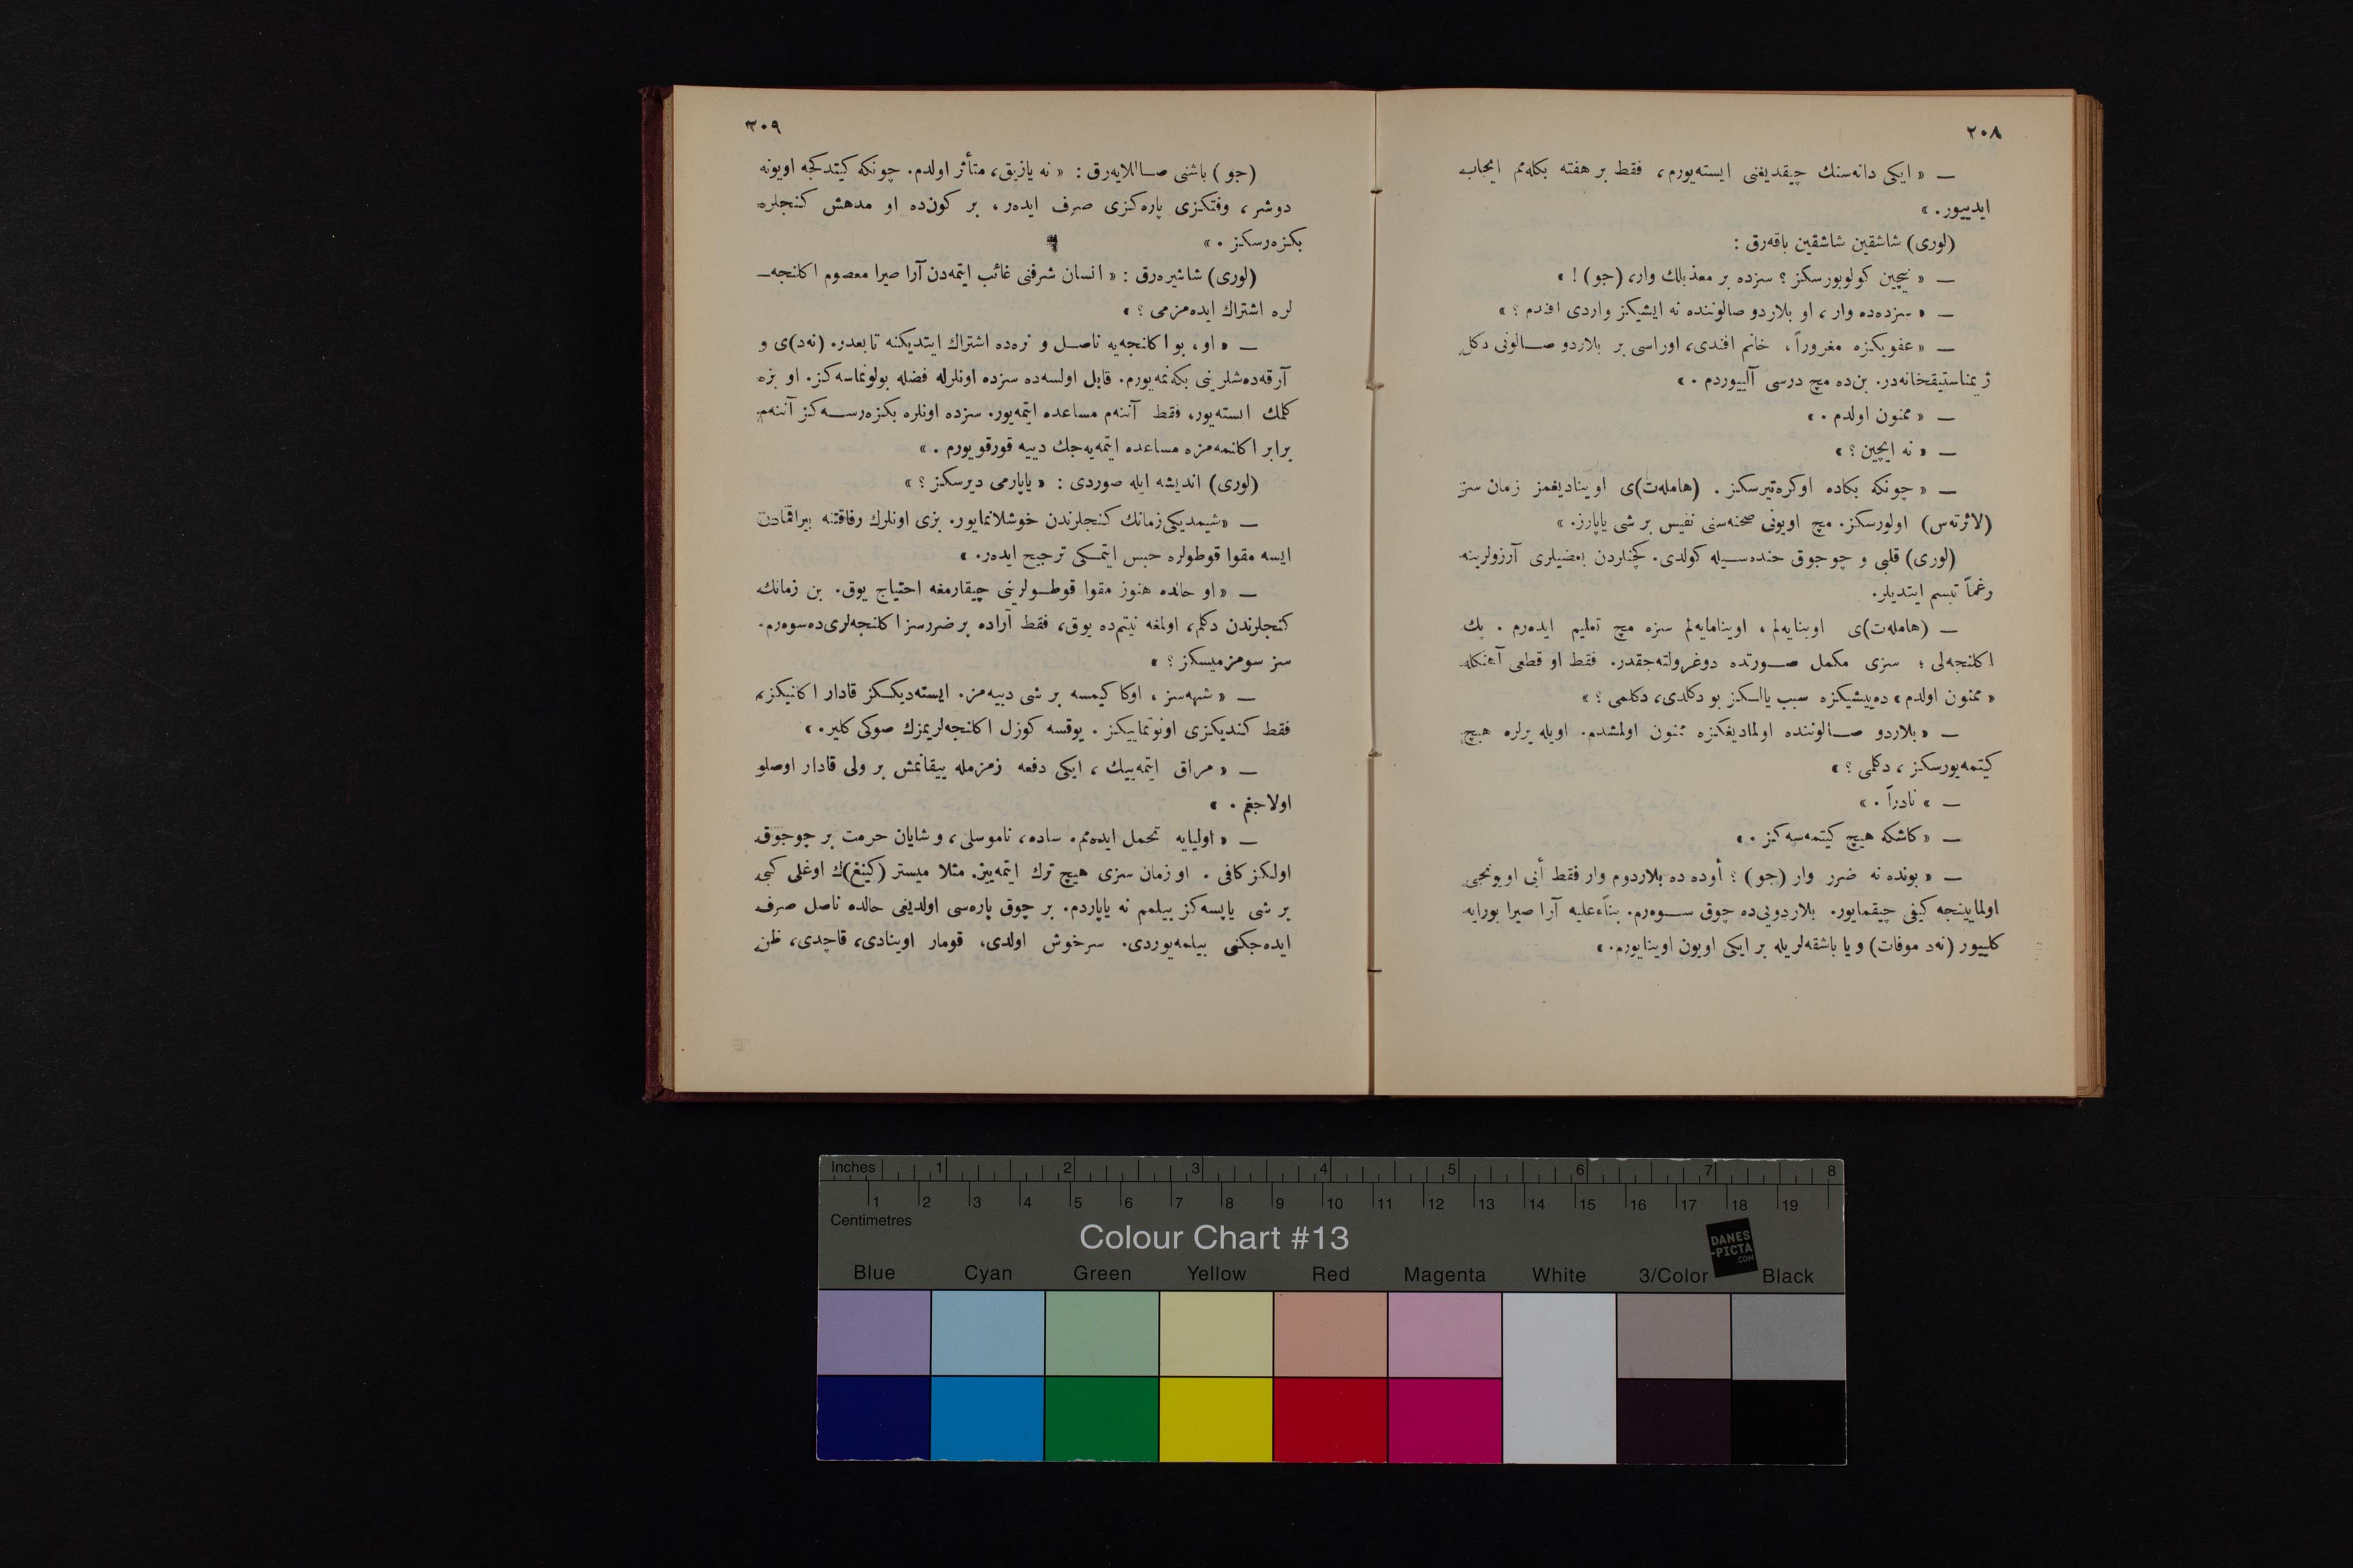 ٢٠٨
— « ایكی دانه‌سنك چیقدیغنی ایسته‌یورم، فقط بر هفته بكله‌مم ایجاب
ایدییور. »
(لوری) شاشقین شاشقین باقه‌رق :
— « نیچین كولویورسكز ؟ سزده بر معذبلك وار، (جو) ! »
— « سزده‌ده وار ، او بلاردو صالوننده نه ایشیكز واردی افندم ؟ »
— « عفویكزه مغروراً، خانم افندی، اوراسی بر بلاردو صـالونی دكل
ژیمناستیقخانه‌در. بن‌ده مچ درسی آلییوردم . »
— « ممنون اولدم . »
— « نه ایچین ؟ »
— « چونكه بكاده اوكره‌تیرسكز . (هامله‌ت)ی اوینادیغمز زمان سز
(لائرته‌س) اولورسكز. مچ اویونی صحنه‌سنی نفیس بر شی یاپارز. »
(لوری) قلبی و چوجوق خنده‌سـیله كولدی. كچنلردن بعضیلری آرزولرینه
رغماً تبسم ایتدیلر.
— (هامله‌ت)ی اوینایه‌لم ، اوینامایه‌لم سزه مچ تعلیم ایده‌رم . پك
اكلنجه‌لی ؛ سزی مكمل صـورتده دوغرولته‌جقدر. فقط او قطعی آهنكله
« ممنون اولدم » ده‌ییشیكزه سبب یالـكز بو دكلدی، دكلمی ؟ »
— « بلاردو صـالوننده اولمادیغكزه ممنون اولمشدم. اویله یرلره هیچ
كیتمه‌یورسكز ، دكلمی ؟ »
— « نادراً . »
— « كاشكه هیچ كیتمه‌سه‌كز . »
— « بونده نه ضرر وار (جو) ؟ أوده ده بلاردوم وار فقط أیی اویونجی
اولمایینجه كیفی چیقمایور. بلاردویی‌ده چوق سـوه‌رم. بناءًعلیه آرا صیرا بورایه
كلییور (نه‌د موفات) و یا باشقه‌لریله بر ایكی اویون اوینایورم. »
٢٠٩
(جو) باشنی صـاللایه‌رق : « نه یازیق، متأثر اولدم. چونكه كیتدكجه اویونه
دوشر ، وقتكزی پاره‌كزی صرف ایده‌ر، بر كون‌ده او مدهش كنجلره
بكزه‌رسكز . »
(لوری) شاشیره‌رق : « انسان شرفنی غائب ایتمه‌دن آرا صیرا معصوم اكلنجه‌ـ
لره اشتراك ایده‌مزمی ؟ »
— « او، بو اكلنجه‌یه ناصـل و نره‌ده اشتراك ایتدیكنه تابعدر. (نه‌د)ی و
آرقه‌ده‌شلرینی بكه‌نمه‌یورم. قابل اولسه‌ده سزده اونلرله فضله بولونماسه‌كز. او بزه
كلمك ایسته‌یور، فقط آننه‌م مساعده ایتمه‌یور. سزده اونلره بكزه‌رسـه‌كز آننه‌م
برابر اكلنمه‌مزه مساعده ایتمه‌یه‌جك دییه قورقویورم . »
(لوری) اندیشه ایله صوردی : « یاپارمی دیرسكز ؟ »
— « شیمدیكی زمانك كنجلرندن خوشلانمایور. بزی اونلرك رفاقتنه بیراقمادن
ایسه مقوا قوطولره حبس ایتمـكی ترجیح ایده‌ر. »
— « او حالده هنوز مقوا قوطـولرینی چیقارمغه احتیاج یوق. بن زمانك
كنجلرندن دكلم، اولمغه نیتم‌ده یوق، فقط آراده بر ضررسز اكلنجه‌لری‌ده سوه‌رم.
سز سومزمیسكز ؟ »
— « شبهه‌سز ، اوكا كیمسه بر شی دییه‌مز. ایسته‌دیكـكز قادار اكلنیكز،
فقط كندیكزی اونوتماییكز . یوقسه كوزل اكلنجه‌لریمزك صوكی كلیر. »
— « مراق ایتمه‌ییك ، ایكی دفعه زمزمله ییقانمش بر ولی قادار اوصلو
اولاجغم . »
— « اولیایه تحمل ایده‌مم. ساده، ناموسلی، و شایان حرمت بر چوجوق
اولكز كافی . او زمان سزی هیچ ترك ایتمه‌ییز. مثلا میستر (كینغ)ك اوغلی كبی
بر شی یاپسه‌كز بیلمم نه یاپاردم. بر چوق پاره‌سی اولدیغی حالده ناصل صرف
ایده‌جكنی بیلمه‌یوردی. سرخوش اولدی، قومار اوینادی، قاچدی، ظن
Inches 1 2 3 4 5 6 7 8
1 2 3 4 5 6 7 8 9 10 11 12 13 14 15 16 17 18 19
Centimetres
Colour Chart #13
DANES
-PICTA
.COM
Blue Cyan Green Yellow Red Magenta White 3/Color Black